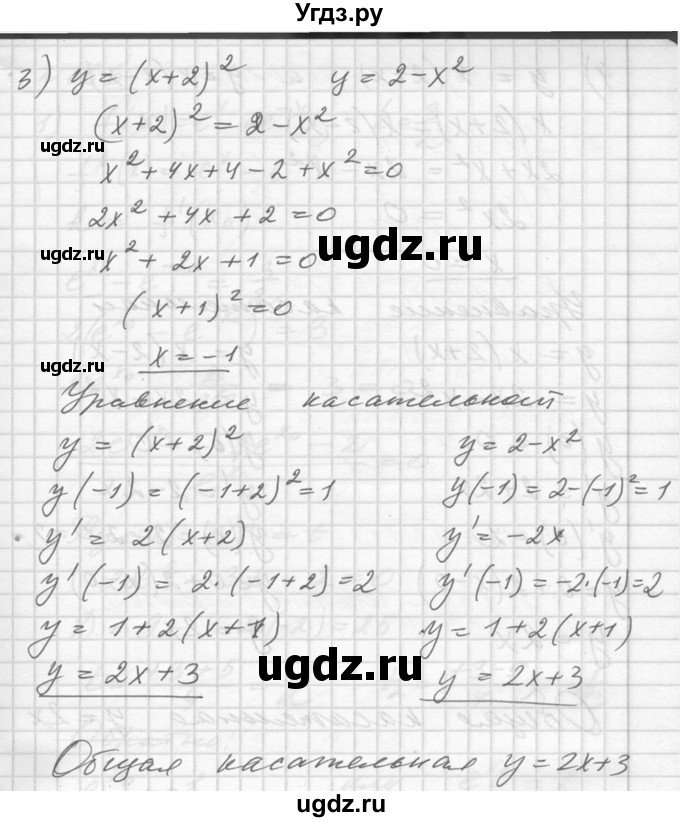 Угдз.ру
3) y = (x+2)² y = 2-x²
(x+2)² = 2-x²
ugdz.ru
x²+4x+4-2+x²=0
2x²+4x+2=0
ugdz.ru
ugdz.ru
x²+2x+1=0
(x+1)²=0
x=-1
ugdz.ru
Уравнение касательной
y = (x+2)² y = 2-x²
ugdz.ru
y(-1) = (-1+2)² = 1 y(-1) = 2-(-1)² = 1
y' = 2(x+2) y' = -2x
ugdz.ru
y'(-1) = 2·(-1+2) = 2 y'(-1) = -2·(-1) = 2
y = 1+2(x+1) y = 1+2(x+1)
ugdz.ru
ugdz.ru
y = 2x+3 y = 2x+3
Общая касательная y = 2x+3
ugdz.ru